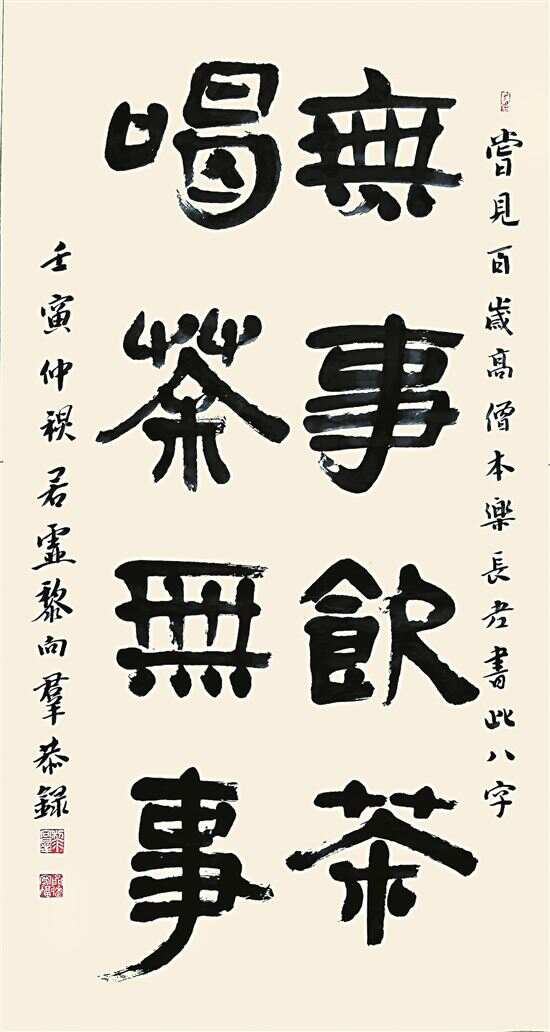 嘗見百歲高僧本樂長老書此八字
無事飲茶
喝茶無事
壬寅仲禩若虛黎向羣恭録